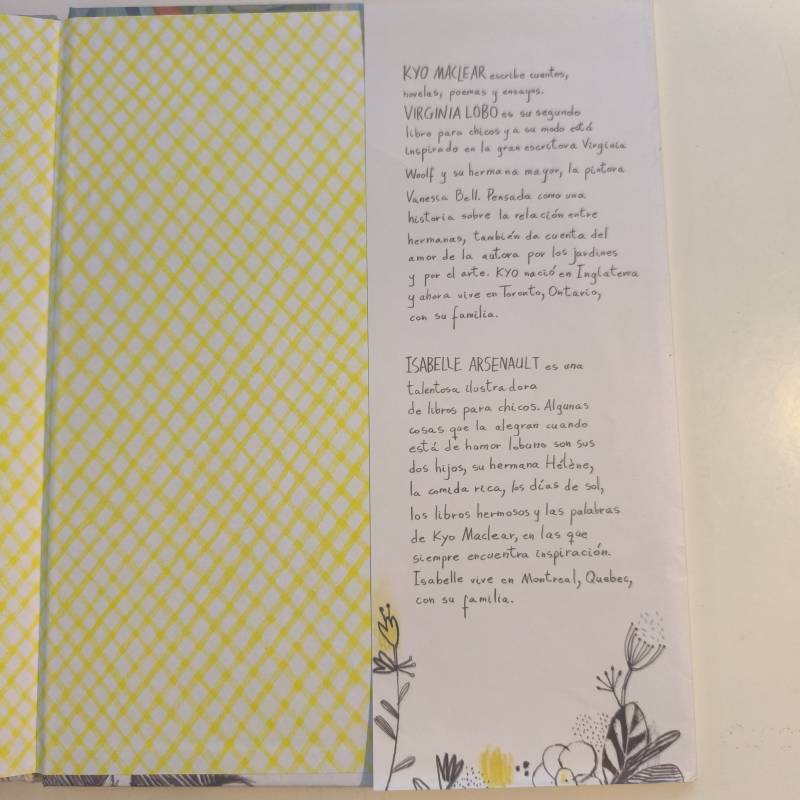 KYO MACLEAR escribe cuentos,
novelas, poemas y ensayos.
VIRGINIA LOBO es su segundo
libro para chicos y a su modo está
inspirado en la gran escritora Virginia
Woolf y su hermana mayor, la pintora
Vanessa Bell. Pensada como una
historia sobre la relación entre
hermanas, también da cuenta del
amor de la autora por los jardines
y por el arte. KYO nació en Inglaterra
y ahora vive en Toronto, Ontario,
con su familia.
ISABELLE ARSENAULT es una
talentosa ilustradora
de libros para chicos. Algunas
cosas que la alegran cuando
está de humor lobuno son sus
dos hijos, su hermana Hélène,
la comida rica, los días de sol,
los libros hermosos y las palabras
de Kyo Maclear, en las que
siempre encuentra inspiración.
Isabelle vive en Montreal, Quebec,
con su familia.